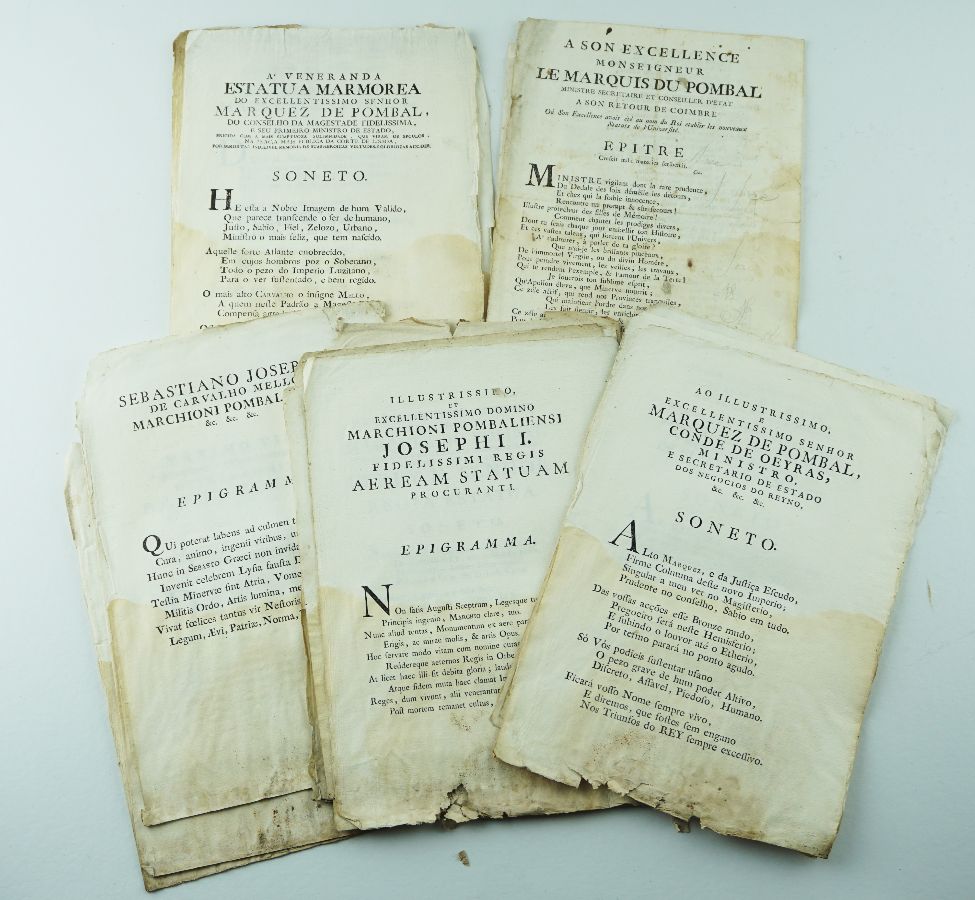 A' VENERANDA
ESTATUA MARMOREA
DO EXCELLENTISSIMO SENHOR
MARQUEZ DE POMBAL,
DO CONSELHO DA MAGESTADE FIDELISSIMA,
E SEU PRIMEIRO MINISTRO DE ESTADO,
NA PRAÇA MAIS PUBLICA DA CORTE DE LISBOA;
SONETO.
HE esta a Nobre Imagem de hum Valido,
Que parece transcende o ser de humano,
Justo, Sabio, Fiel, Zelozo, Urbano,
Ministro o mais feliz, que tem nascido.
Aquelle forte Atlante enobrecido,
Em cujos hombros poz o Soberano,
Todo o pezo do Imperio Luzitano,
Para o ver sustentado, e bem regido.
O mais alto CARVALHO o insigne MELLO,
A quem neste Padrão a
A SON EXCELLENCE
MONSEIGNEUR
LE MARQUIS DU POMBAL
MINISTRE SECRETAIRE ET CONSEILLER D'ETAT
A SON RETOUR DE COIMBRE
Où Son Excellence avoit été au nom du Roi établir les nouveaux
Statuts de l'Université.
EPITRE
MINISTRE vigilant dont la rare prudence,
Du Dedale des loix démêle les détours,
Et chez qui la foible innocence,
Rencontre un prompt & sûr secours!
Illustre protecteur des filles de Mémoire!
Comment chanter les prodiges divers,
Dont tu sçais chaque jour embellir ton Histoire,
Et tes vastes talens, qui forcent l'Univers,
A t'admirer, à parler de ta gloire?
Que n'ai-je les brillans pinceaux,
De l'immortel Virgile, ou du divin Homére,
Pour peindre vivement, les veilles, les travaux,
Qui te rendent l'exemple, & l'amour de la Terre!
Je louerois ton sublime esprit,
Qu'Apollon éleva, que Minerve nourrit;
Ce zéle actif, qui rend nos Provinces tranquiles,
Qui maintient l'ordre dans nos
SEBASTIANO JOSEP
DE CARVALHO MELLO
MARCHIONI POMBAL
&c. &c. &c.
EPIGRAMM
QUi poterat labens ad culmen t
Cura, animo, ingenii viribus, u
Hunc in SEBASTO Græci non invida
Invenit celebrem Lysia fausta D
Testia Minervæ sint Atria, Vome
Militis Ordo, Artis lumina, me
Vivat fœlices tantus vir Nestoris
Legum, Ævi, Patriæ, Norma,
ILLUSTRISSIMO,
ET
EXCELLENTISSIMO DOMINO
MARCHIONI POMBALIENSI
JOSEPHI I.
FIDELISSIMI REGIS
AEREAM STATUAM
PROCURANTI.
EPIGRAMMA.
NOn satis Augusti Sceptrum, Legesque
Principis ingenio, MARCHIO clare, tuo.
Nunc aliud tentas, Monumentum ex aere para
Erigis, ac mirae molis, & artis Opus.
Hoc servare modo vitam cum nomine curas
Reddereque aeternos Regis in Orbe
At licet haec illi sit debita gloria; laude
Atque fidem muta haec clamat
Reges, dum vivunt, alii venerantur
Post mortem remanet cultus,
AO ILLUSTRISSIMO,
E
EXCELLENTISSIMO SENHOR
MARQUEZ DE POMBAL,
CONDE DE OEYRAS,
MINISTRO,
E SECRETARIO DE ESTADO
DOS NEGOCIOS DO REYNO,
&c. &c. &c.
SONETO.
ALto MARQUEZ, e da Justiça Escudo,
Firme Columna deste novo Imperio;
Singular a meu ver no Magisterio,
Prudente no conselho, Sabio em tudo.
Das vossas acções esse Bronze mudo,
Pregoeiro será neste Hemisferio;
E subindo o louvor até o Etherio,
Por termo parará no ponto agudo.
Só Vós podieis sustentar usano
O pezo grave de hum poder Altivo,
Discreto, Affavel, Piedoso, Humano.
Ficará vosso Nome sempre vivo,
E diremos, que fostes sem engano
Nos Triunfos do REY sempre excessivo.